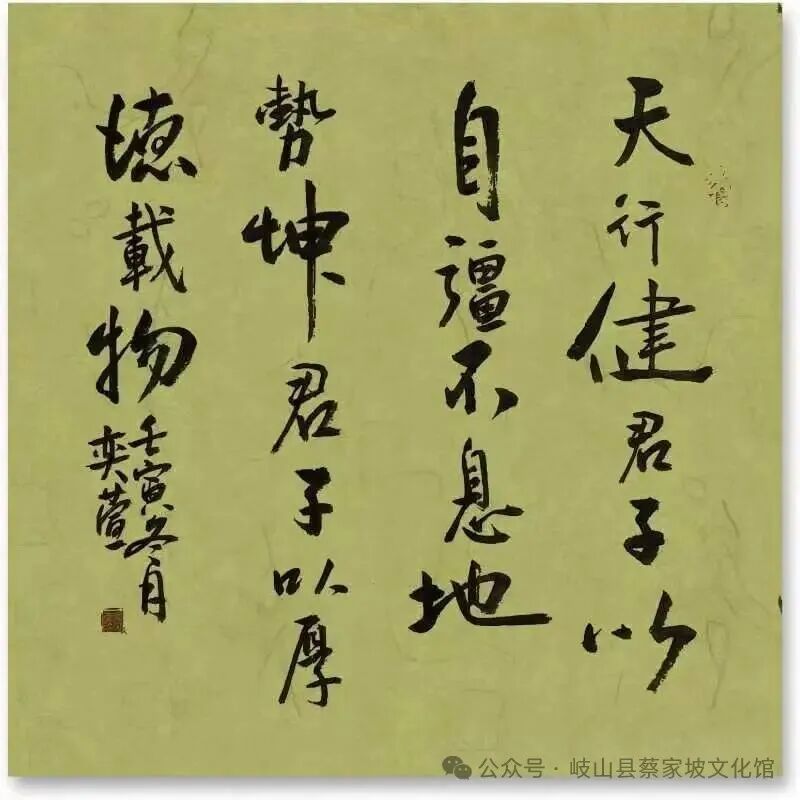 天行健君子以
自彊不息地
勢坤君子以厚
德載物
壬寅冬月
奕萱
公众号 · 岐山县蔡家坡文化馆